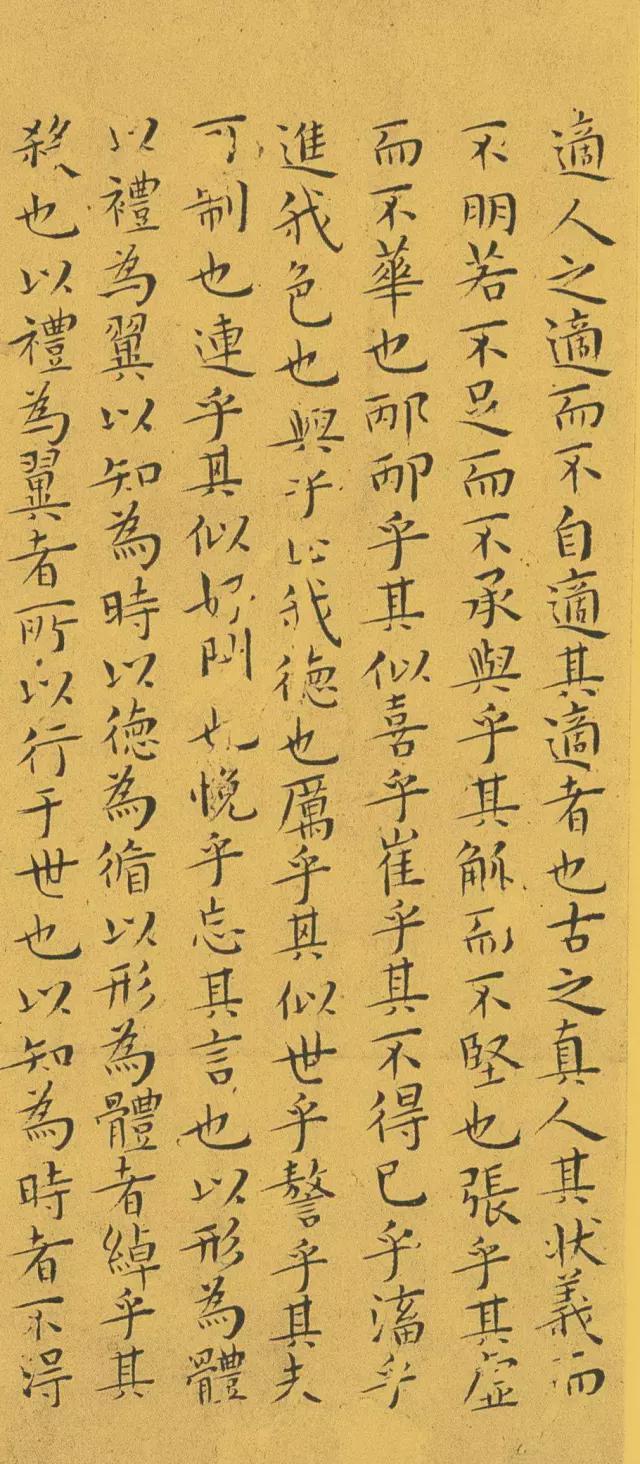 適人之適而不自適其適者也古之真人其状義而
不明若不足而不承與乎其觚而不堅也張乎其虛
而不華也邴邴乎其似喜乎崔乎其不得已乎滀乎
進我色也與乎止我德也厲乎其似世乎謷乎其未
可制也連乎其似好閉也悗乎忘其言也以形為體
以禮為翼以知為時以德為循以形為體者綽乎其
殺也以禮為翼者所以行于世也以知為時者不得